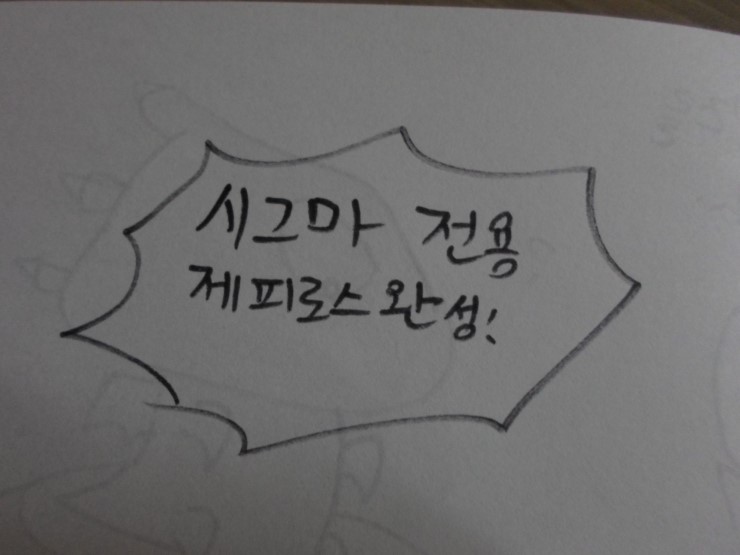 시그마 전용
제피로스 완성!